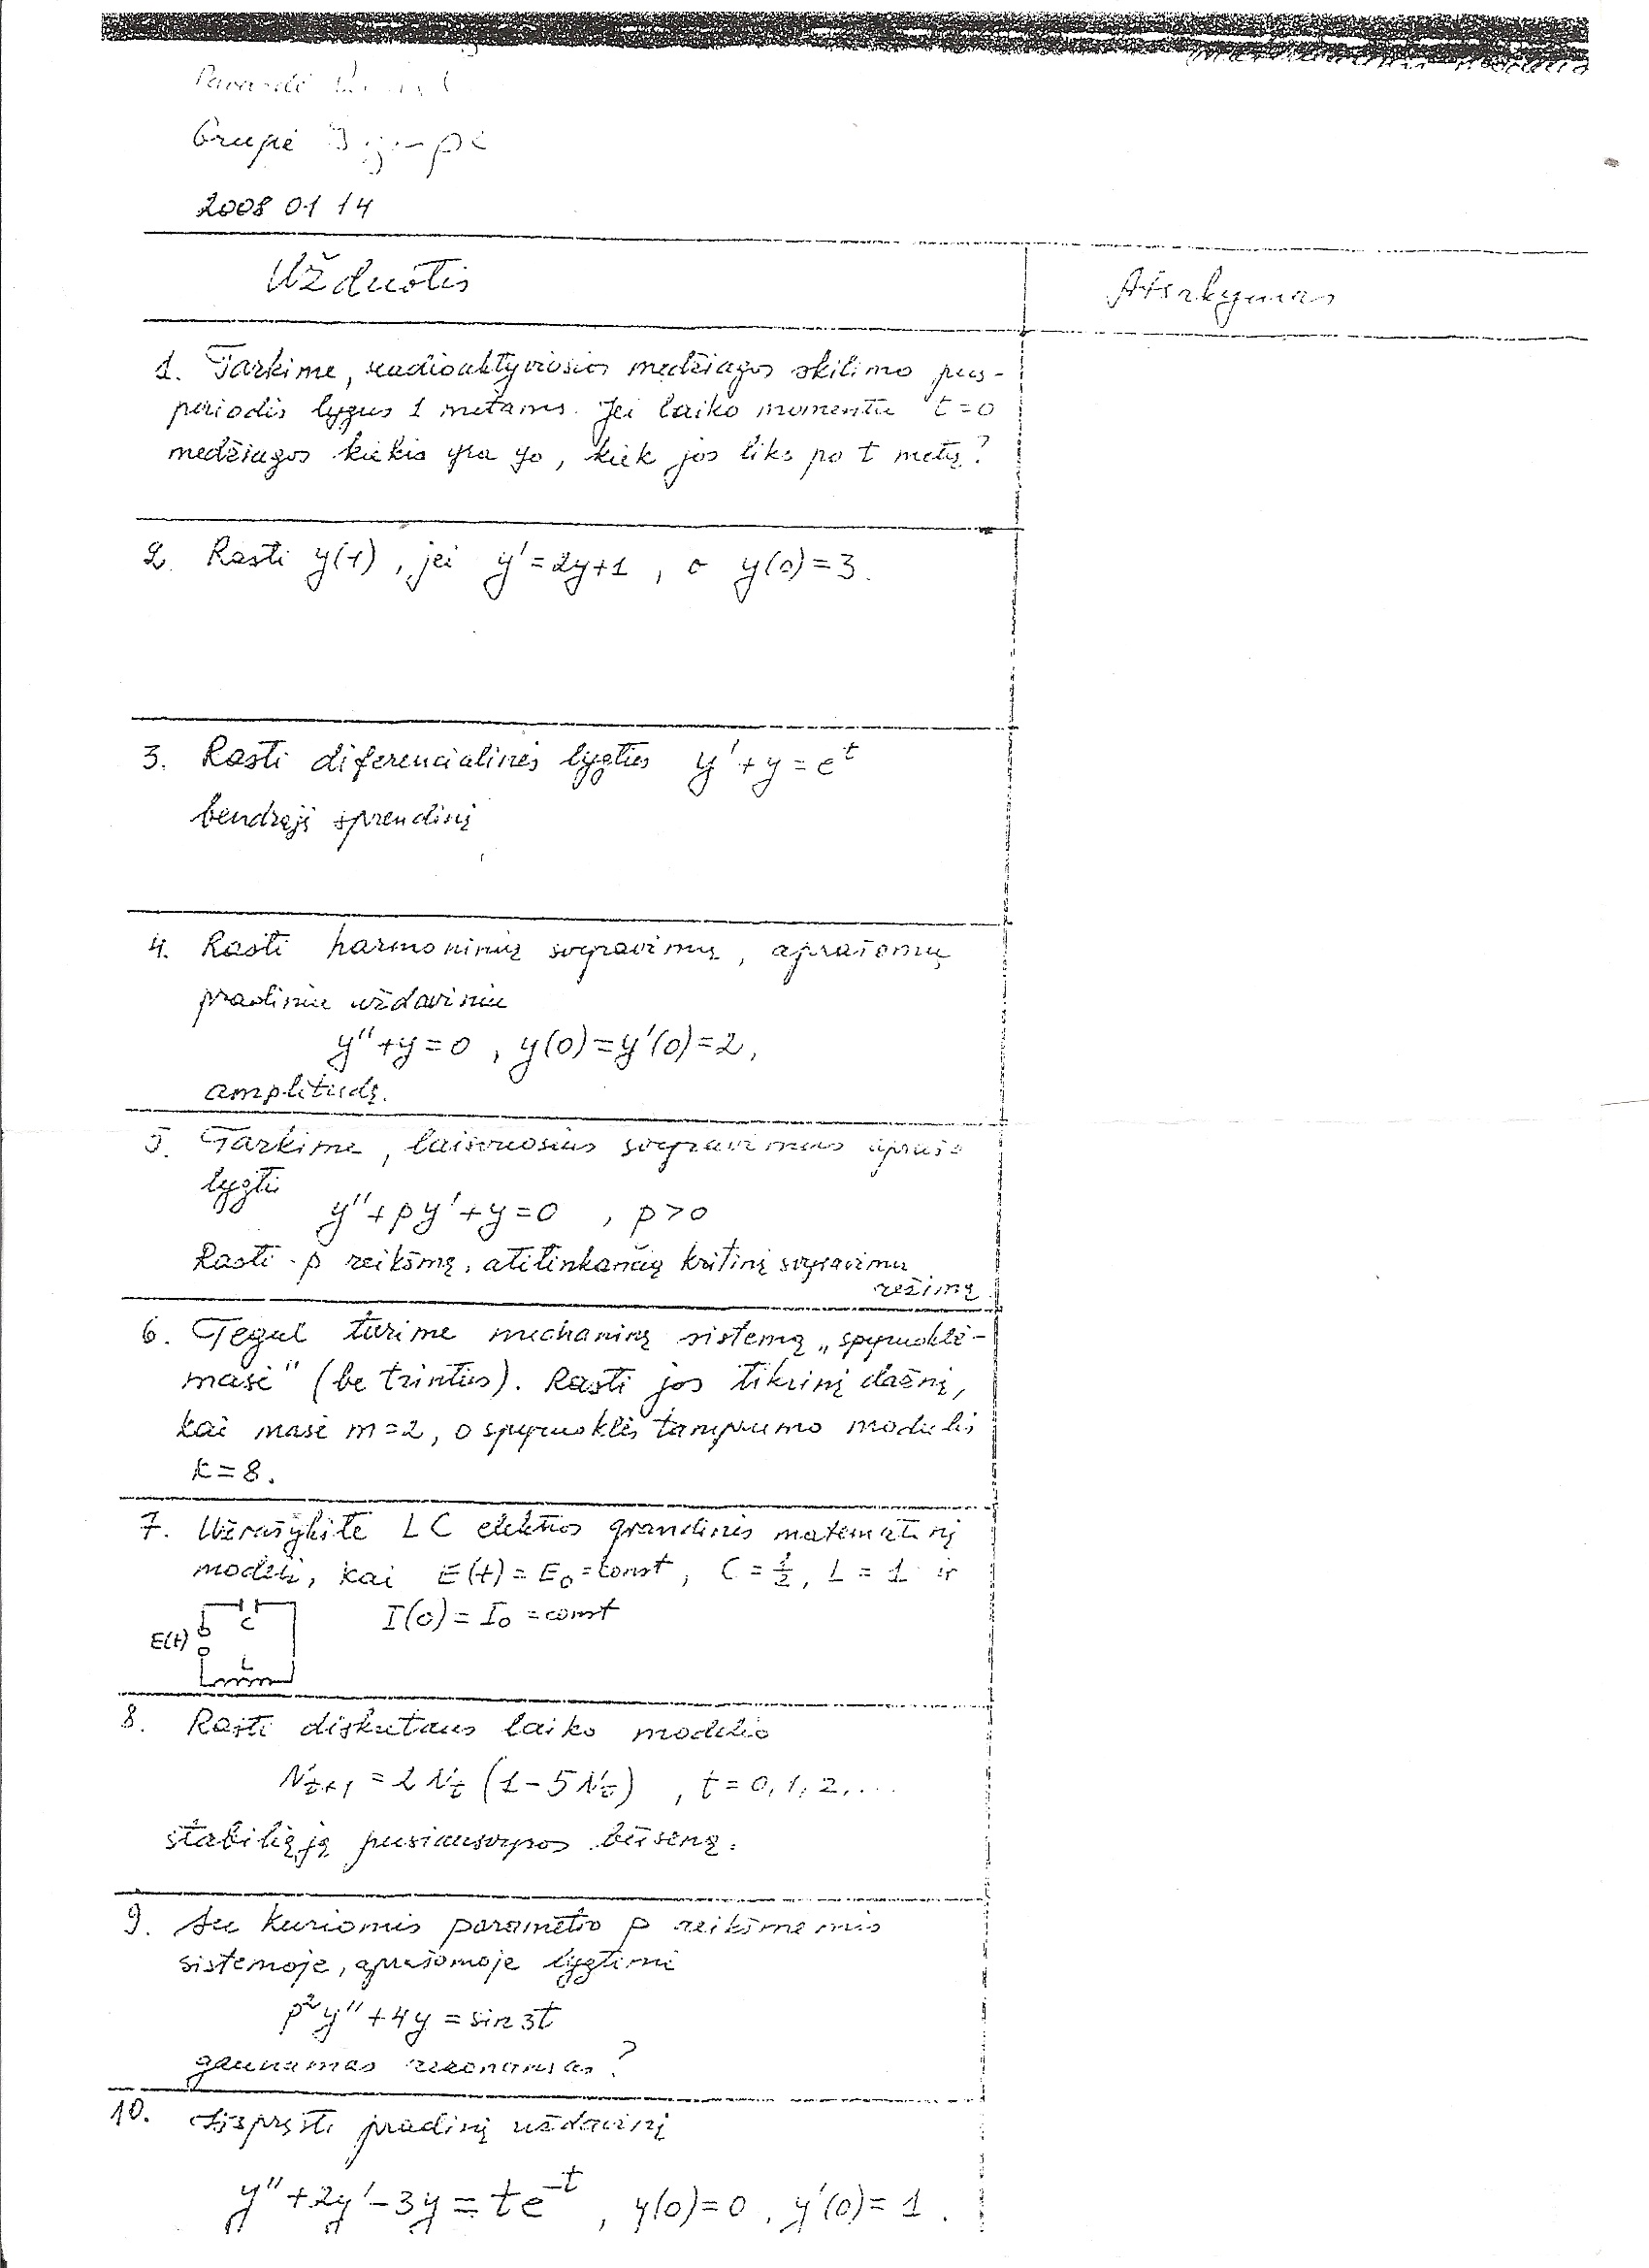 Grupė
2008 01 14
Užduotis
Atsakymas
1. Tarkime, radioaktyviosios medžiagos skilimo pus-
periodis lygus 1 metams. Jei laiko momentu t=0
medžiagos kiekis yra y₀, kiek jos liks po t metų?
2. Rasti y(t), jei y'=2y+1, o y(0)=3.
3. Rasti diferencialinės lygties y'+y=eᵗ
bendrąjį sprendinį
4. Rasti harmoninių svyravimų, aprašomų
pradiniu uždaviniu
y''+y=0, y(0)=y'(0)=2,
amplitudę.
5. Tarkime, laisvuosius svyravimus aprašo
lygtis
y''+py'+y=0, p>0
Rasti p reikšmę, atitinkančią kritinį svyravimų
režimą.
6. Tegul turime mechaninę sistemą „spyruoklė-
masė" (be trinties). Rasti jos tikrinį dažnį,
kai masė m=2, o spyruoklės tamprumo modulis
k=8.
7. Užrašykite LC elektros grandinės matematinį
modelį, kai E(t)=E₀=const, C=1/2, L=1 ir
I(0)=I₀=const
C
E(t)
L
8. Rasti diskretaus laiko modelio
Nₜ₊₁=2Nₜ(1-5Nₜ), t=0,1,2,...
stabiliąją pusiausvyros būseną.
9. Su kuriomis parametro p reikšmėmis
sistemoje, aprašomoje lygtimi
p²y''+4y=sin3t
gaunamas rezonansas?
10. Išspręsti pradinį uždavinį
y''+2y'-3y=te⁻ᵗ, y(0)=0, y'(0)=1.